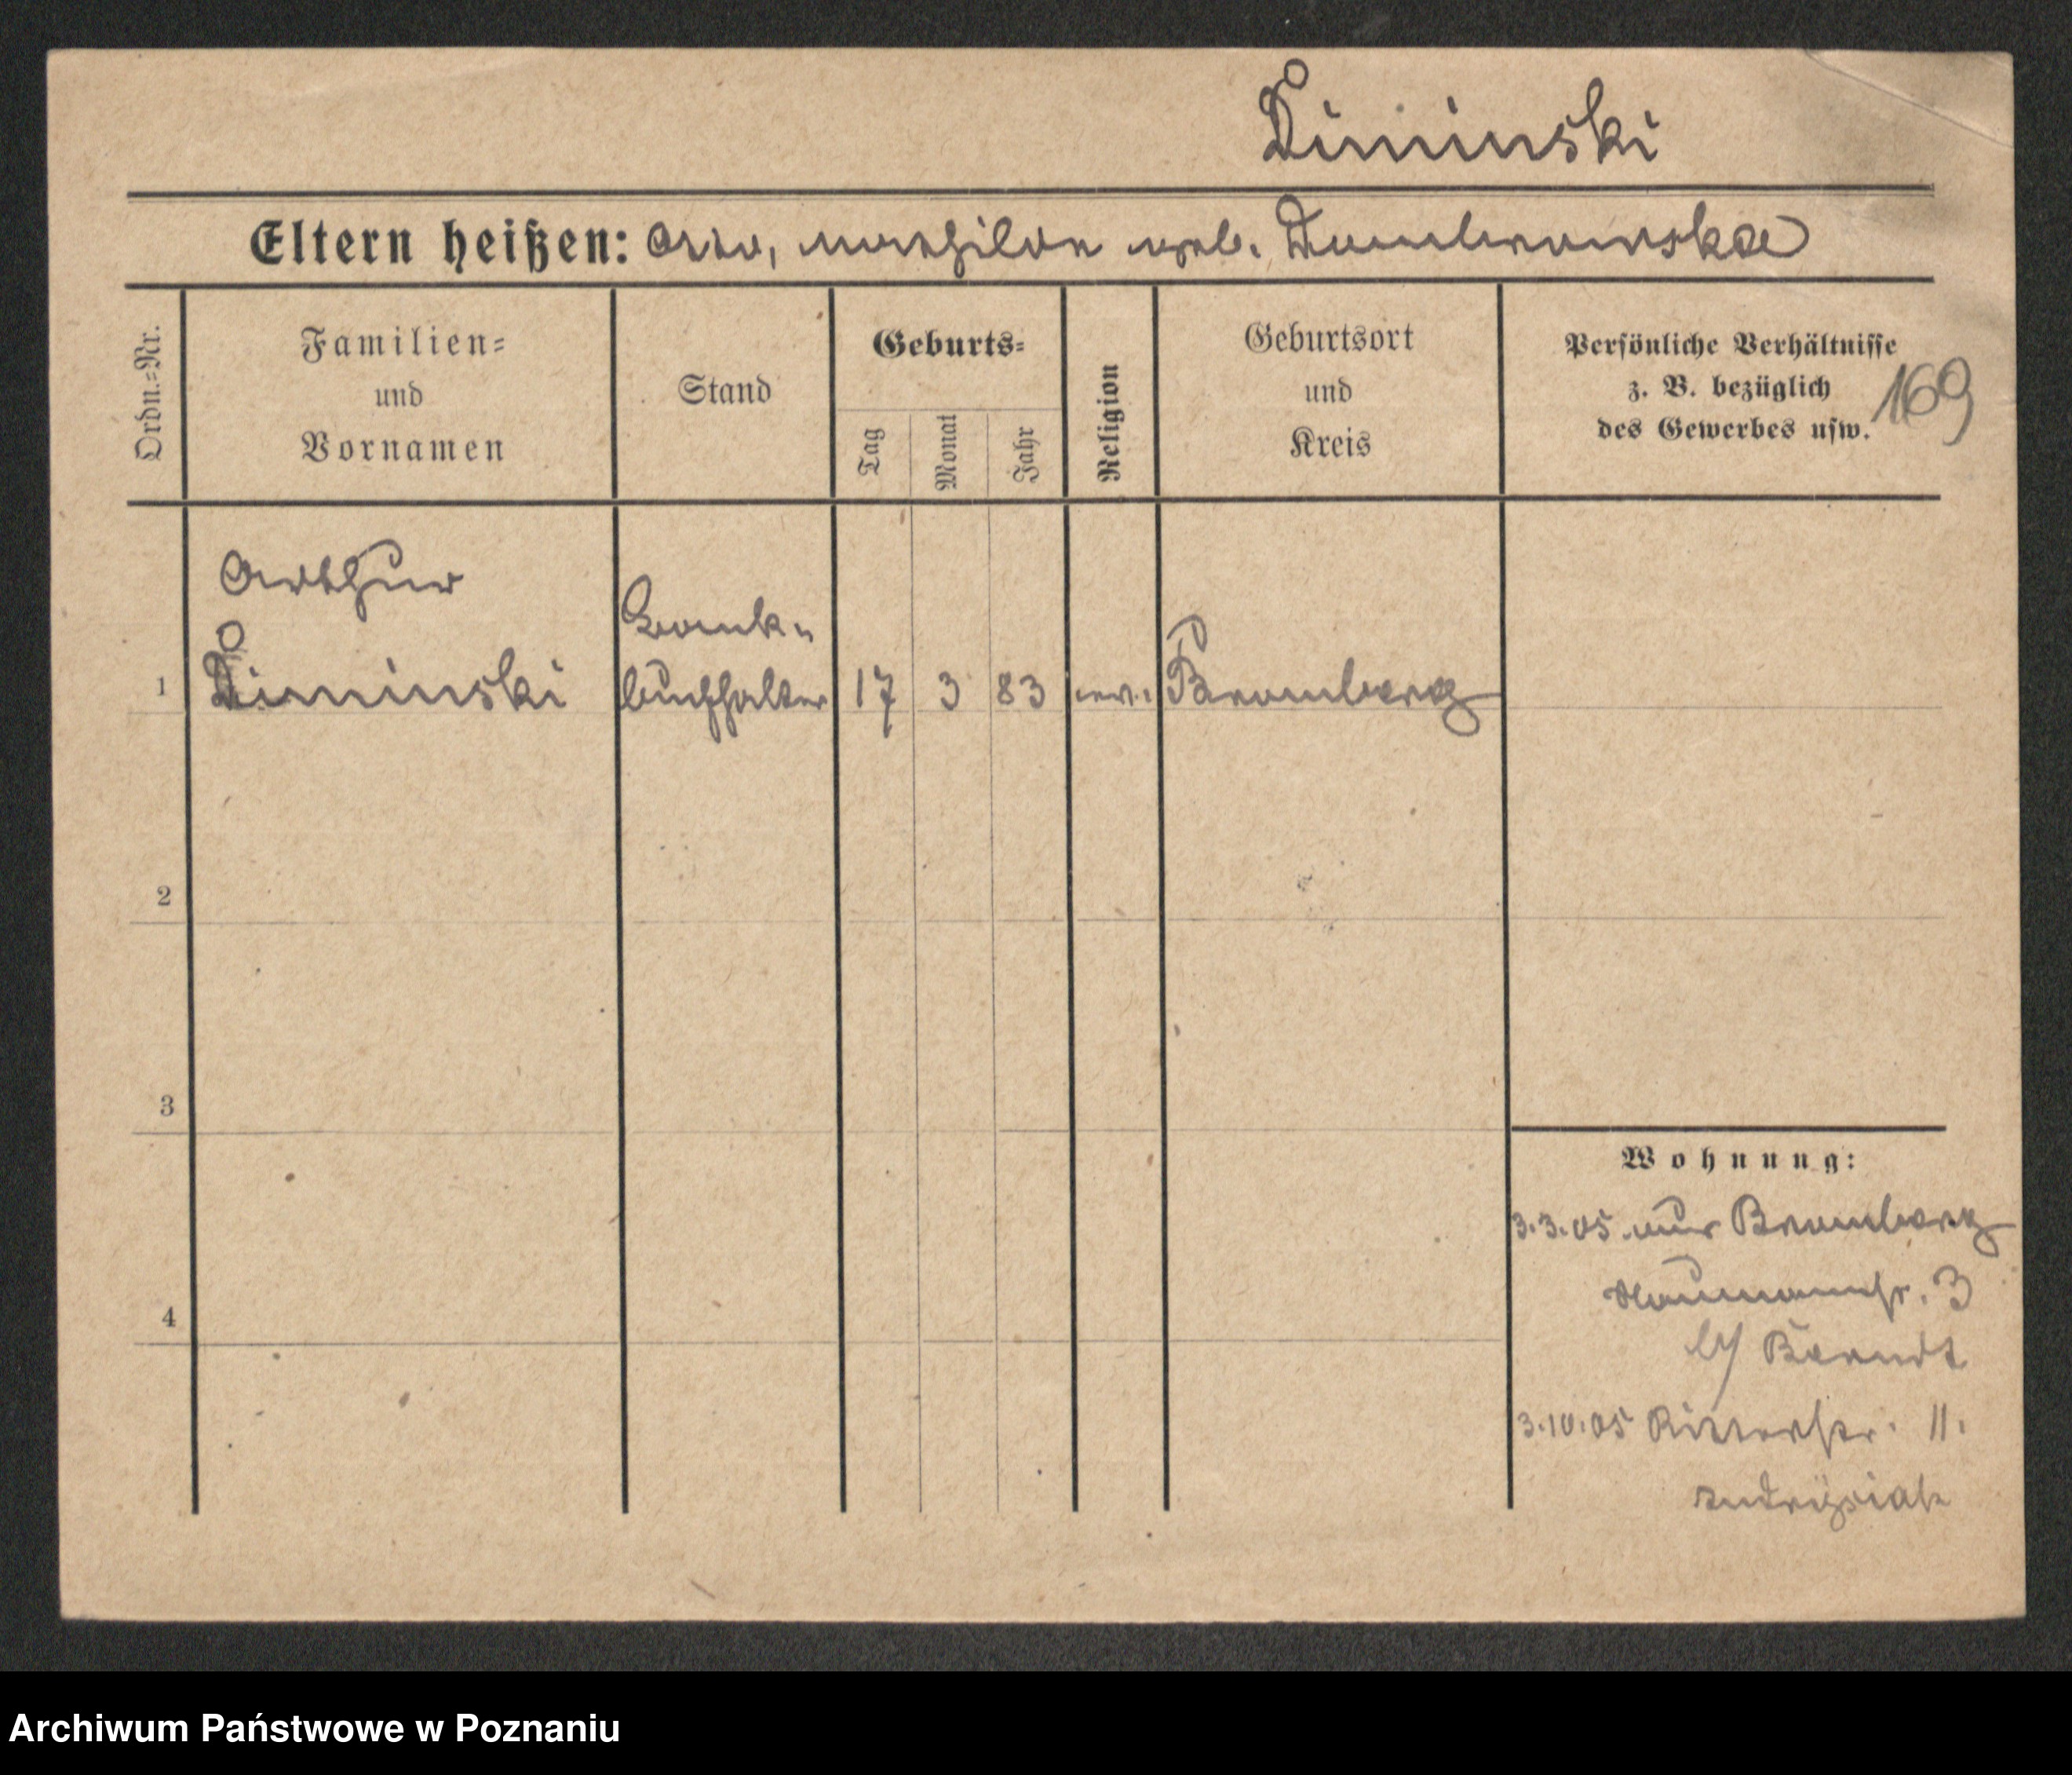 Diminski
Eltern heißen: Otto, Mathilde geb. Dombrowska
Ordn.=Nr.
Familien=
und
Vornamen
Stand
Geburts=
Tag
Monat
Jahr
Religion
Geburtsort
und
Kreis
Persönliche Verhältnisse
z. B. bezüglich
des Gewerbes usw.
169
Arthur
1 Diminski
Bank-
buchhalter
17 3 83 ev. Bromberg
2
3
4
Wohnung:
3.3.05 aus Bromberg
Naumannstr. 3
b/ Berndt
3.10.05 Ritterstr. 11.
Archiwum Państwowe w Poznaniu